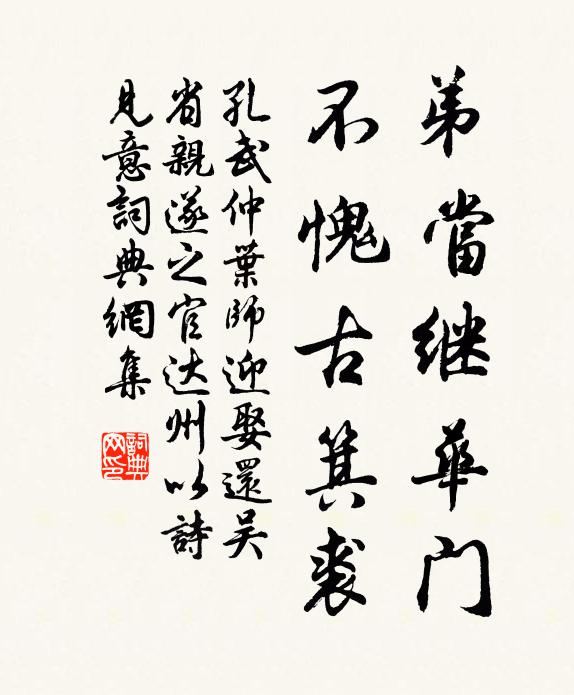 弟當继華门
不愧古箕裘
孔武仲葉師迎娶還吴
省親遂之官达州以詩
見意詞典網集
詞典网印